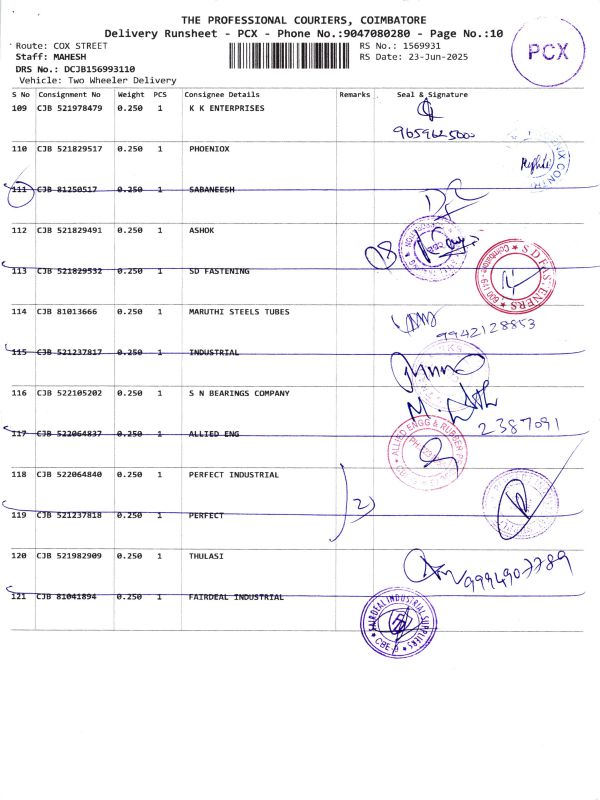 THE PROFESSIONAL COURIERS, COIMBATORE
Delivery Runsheet - PCX - Phone No.:9047080280 - Page No.:10
Route: COX STREET
RS No.: 1569931
Staff: MAHESH
RS Date: 23-Jun-2025
DRS No.: DCJB156993110
Vehicle: Two Wheeler Delivery
PCX
S No Consignment No Weight PCS Consignee Details Remarks Seal & Signature
109 CJB 521978479 0.250 1 K K ENTERPRISES
9659625000
110 CJB 521829517 0.250 1 PHOENIOX
111 CJB 81250517 0.250 1 SABANEESH
112 CJB 521829491 0.250 1 ASHOK
113 CJB 521829532 0.250 1 SD FASTENING
SD FASTENERS
114 CJB 81013666 0.250 1 MARUTHI STEELS TUBES
9942128853
115 CJB 521237817 0.250 1 INDUSTRIAL
116 CJB 522105202 0.250 1 S N BEARINGS COMPANY
2387091
117 CJB 522064837 0.250 1 ALLIED ENG
ALLIED ENGG & RUBBER
118 CJB 522064840 0.250 1 PERFECT INDUSTRIAL
2)
119 CJB 521237818 0.250 1 PERFECT
120 CJB 521982909 0.250 1 THULASI
121 CJB 81041894 0.250 1 FAIRDEAL INDUSTRIAL
FAIRDEAL INDUSTRIAL SUPPLIERS
CBE-9